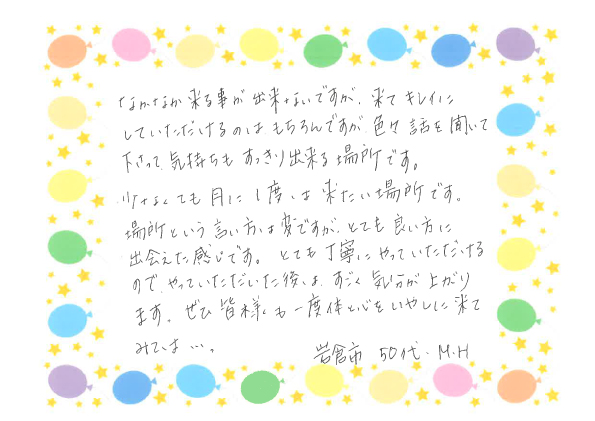 なかなか来る事が出来ないですが、来てキレイに
していただけるのはもちろんですが、色々話を聞いて
下さって、気持ちもすっきり出来る場所です。
少なくても月に1度は来たい場所です。
場所という言い方は変ですが、とても良い方に
出会えた感じです。とても丁寧にやっていただける
ので、やっていただいた後は、すごく気分が上がり
ます。ぜひ皆様も一度体と心をいやしに来て
みては…。
岩倉市 50代・M.H